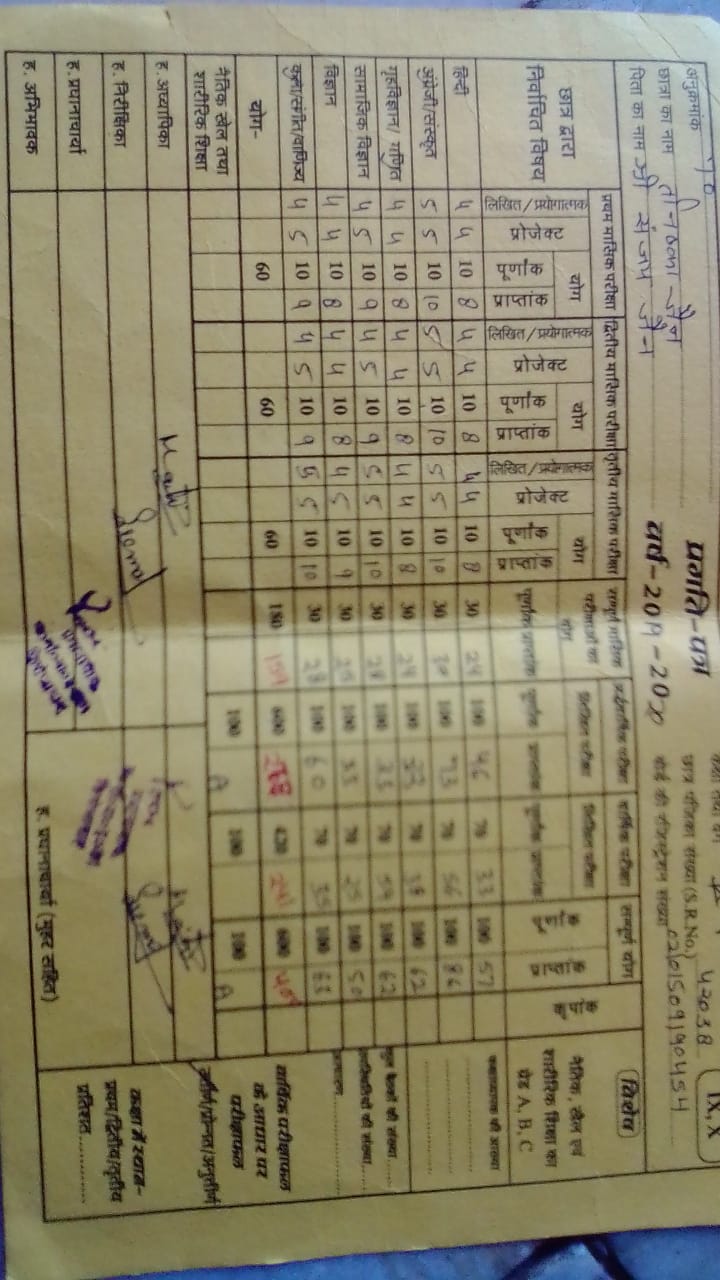 प्रगति-पत्र
IX, X
अनुक्रमांक
छात्रा का नाम
छात्र पंजिका संख्या (S.R.No.) 42038
पिता का नाम श्री संजय जैन
वर्ष-2019-2020
बोर्ड की रजिस्ट्रेशन संख्या
छात्र द्वारा निर्वाचित विषय
प्रथम मासिक परीक्षा द्वितीय मासिक परीक्षा तृतीय मासिक परीक्षा सम्पूर्ण मासिक परीक्षाओं का योग अर्द्धवार्षिक परीक्षा वार्षिक परीक्षा सम्पूर्ण योग कृपांक विशेष
लिखित/प्रयोगात्मक प्रोजेक्ट योग लिखित/प्रयोगात्मक प्रोजेक्ट योग लिखित/प्रयोगात्मक प्रोजेक्ट योग लिखित परीक्षा लिखित परीक्षा
पूर्णांक प्राप्तांक पूर्णांक प्राप्तांक पूर्णांक प्राप्तांक पूर्णांक प्राप्तांक पूर्णांक प्राप्तांक पूर्णांक प्राप्तांक पूर्णांक प्राप्तांक
नैतिक, खेल एवं शारीरिक शिक्षा का ग्रेड A, B, C
हिन्दी 4 4 10 8 4 4 10 8 4 4 10 8 30 24 100 46 70 33 100 57
अंग्रेजी/संस्कृत 5 5 10 10 5 5 10 10 5 5 10 10 30 30 100 73 70 56 100 86
गृहविज्ञान/ गणित 4 4 10 8 4 4 10 8 4 4 10 8 30 24 100 70 38 100 62
सामाजिक विज्ञान 4 5 10 9 4 5 10 9 5 5 10 10 30 28 100 70 100 62
विज्ञान 4 4 10 8 4 4 10 8 4 5 10 9 30 25 100 33 70 25 100 50
कला/संगीत/वाणिज्य 4 5 10 9 4 5 10 9 5 5 10 10 30 28 100 60 70 35 100 63
योग- 60 60 60 180 600 420 600
वार्षिक परीक्षाफल के आधार पर
नैतिक खेल तथा शारीरिक शिक्षा 100 A 100 100 A
परीक्षाफल
ह. अध्यापिका
ह. निरीक्षिका
कक्षा में स्थान-
ह. प्रधानाचार्या
प्रथम/द्वितीय/तृतीय
ह. अभिभावक
ह. प्रधानाचार्या (मुहर सहित)
प्रतिशत..............